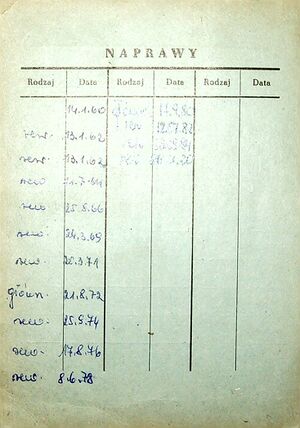 NAPRAWY
Rodzaj Data Rodzaj Data Rodzaj Data
14.1.60 główn 17.9.80
rew. 13.1.62 rew
rew. 13.1.62 rew
rew
rew. 25.8.66
rew. 24.3.69
rew. 20.3.71
główn. 21.8.72
rew. 25.9.74
rew. 17.8.76
rew. 8.6.78